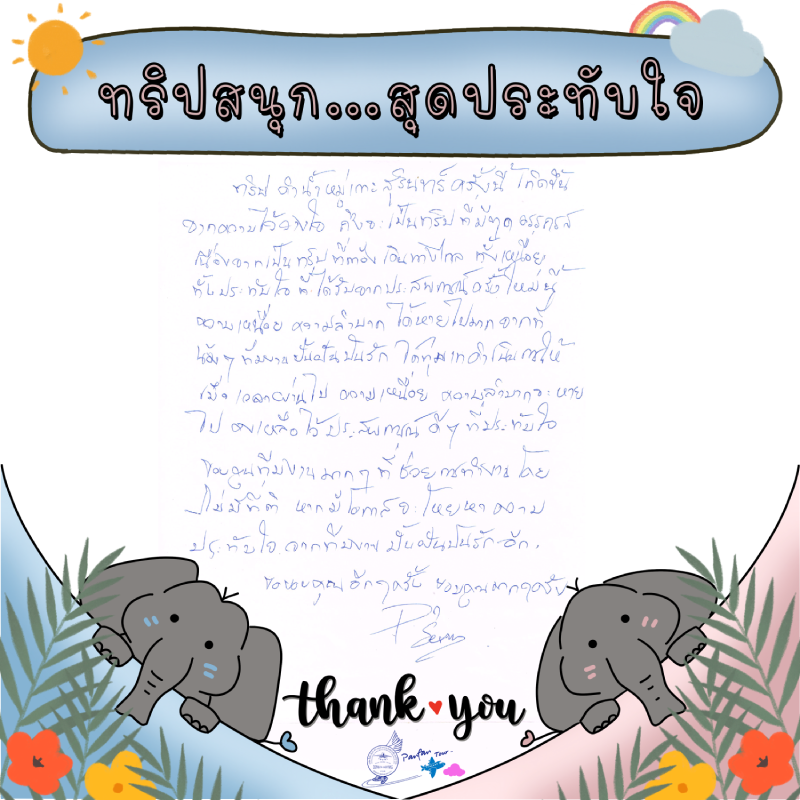 ทริปสนุก...สุดประทับใจ
ทริป ดำน้ำหมู่เกาะ สุรินทร์ ครั้งนี้ เกิดขึ้น
จากความไว้วางใจ ถึงจะเป็นทริปที่มี
เนื่องจากเป็นทริปที่ต้องเดินทางไกล ทั้งเหนื่อย
ทั้งประทับใจ ที่ได้รับจากประสบการณ์ครั้งใหม่นี้
ความเหนื่อย ความลำบาก ได้หายไปมาก จากที่
น้องๆ ทีมงานปั้นฝันปันรัก ได้ทุ่มเทดำเนินการให้
เมื่อเวลาผ่านไป ความเหนื่อย ความลำบากจะหาย
ไป คงเหลือไว้ประสบการณ์ ดีๆ ที่ประทับใจ
ขอบคุณทีมงานมากๆ ที่ช่วยการทำงาน โดย
ไม่มีที่ติ หากมีโอกาสจะโหยหาความ
ประทับใจจากทีมงานปั้นฝันปันรัก อีก.
ขอขอบคุณอีกๆครั้ง ขอบคุณมากๆครับ
thank you
Tour.